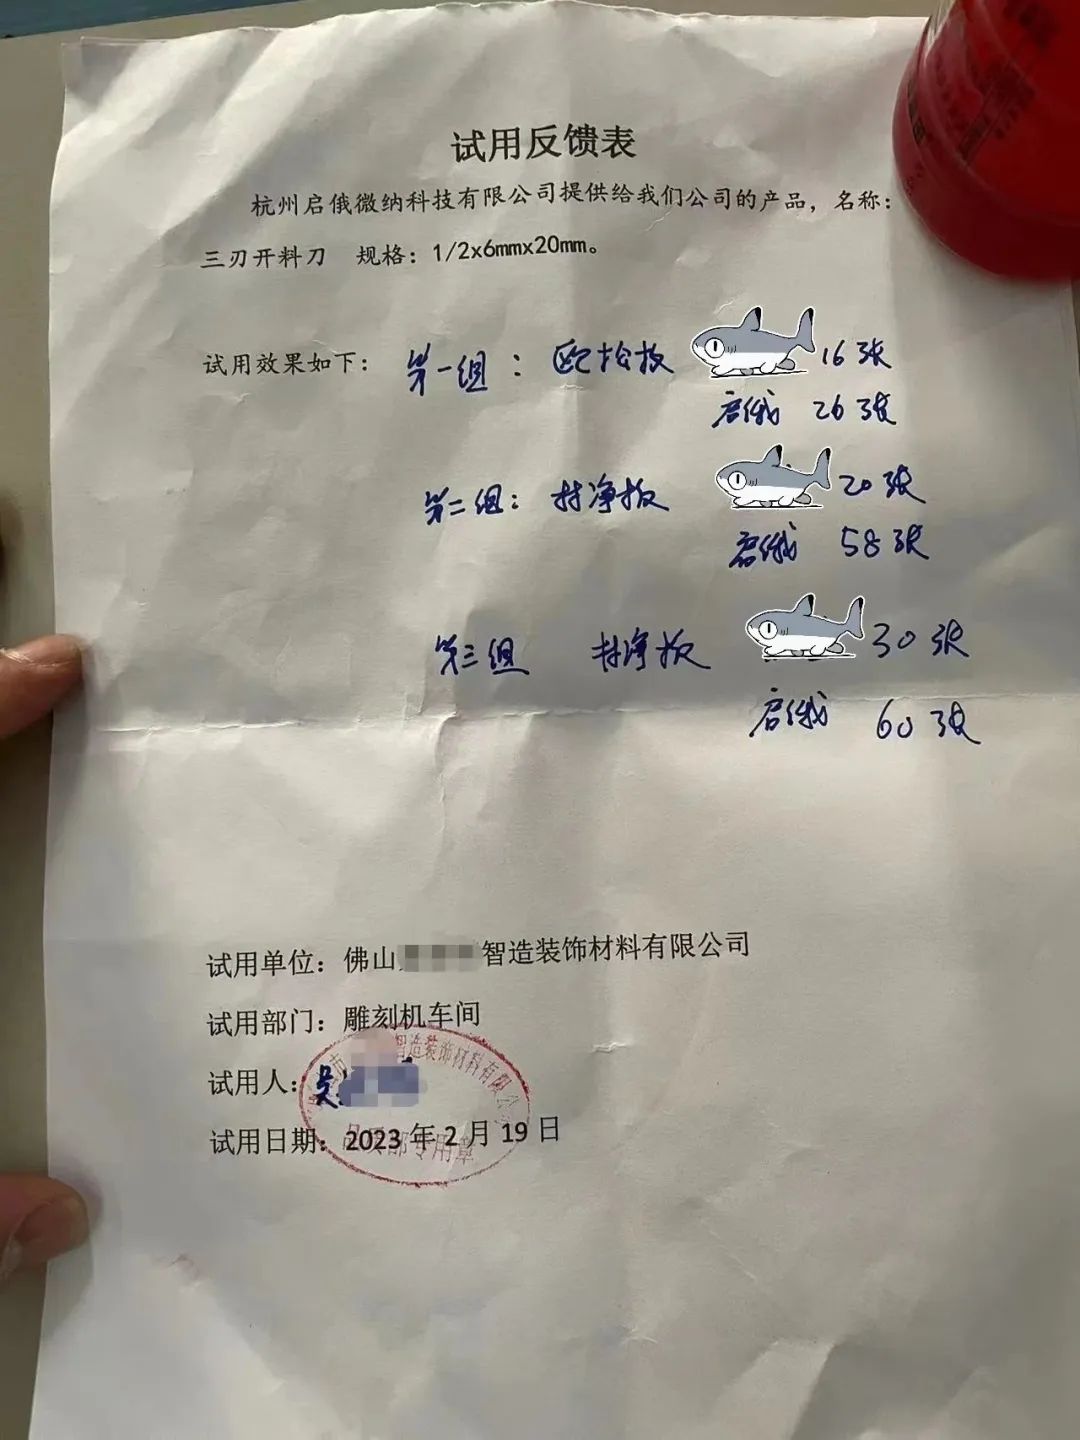 试用反馈表
杭州启俄微纳科技有限公司提供给我们公司的产品，名称：
三刃开料刀 规格：1/2x6mmx20mm。
试用效果如下： 第一组：欧松板 16张
启俄 26张
第二组：林净板 20张
启俄 58张
第三组 林净板 30张
启俄 60张
试用单位：佛山 智造装饰材料有限公司
试用部门：雕刻机车间
试用人：吴
试用日期：2023年2月19日
市 智造装饰材料有限公
品质部专用章